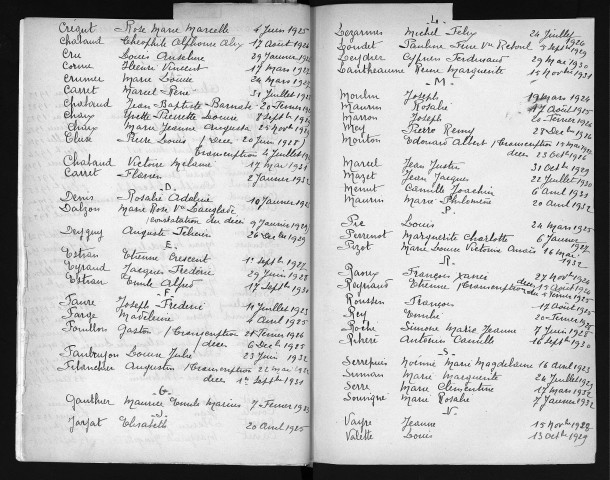 Crégut Rose Marie Marcelle 4 Juin 1925
Chabaud Théophile Alphonse Aley 17 Août 1926
Cru Louis Anselme 29 Janvier 1926
Corne Élexis Vincent 17 Mars 192
Crumer Marie Louise 24 Mars 19
Carret Marcel René 31 Juillet
Chabaud Jean-Baptiste Barnabé 20 Février
Chaix Yvette Pierrette Louise 8 Septbre
Chaix Marie Jeanne Augusta 25 Novbre
Cluse Pierre Louis (Deces 20 Juin 1925)
transcription 4 Juillet
Chabaud Victoire Mélanie 17 Mai 1931
Carret Flavien 2 Janvier 1932
-D-
Denis Rosalie Adeline 10 Janvier 192
Dalzon Marie Rose Vve Dauglade
(constatation du deces 9 Janvier 1929
Drogny Auguste Félicien 26 Decbre 1929
E.
Estran Etienne Crescent 1er Septbre 1927
Eyraud Jacques Frédéric 29 Juin 1928
Estran Emile Alfred 17 Septbre 1930
F
Faure Joseph Frédéric 11 Juillet 1925
Farge Madeleine 4 Avril 1925
Pouillon Gaston (transcription 25 Février 1926
deces 6 Decbre 1925
Faubuyon Louise Julie 23 Juin 1932
Filancher Augustin (transcription 22 Mai 193
deces 1er Septbre 1931
-G-
Gauthier Maurice Emile Marius 7 Février 19
-J-
Jarjat Elisabeth 20 Avril 1925
-L-
Lezarmes Michel Félix 24 Juillet 1926
Loudet Pauline Fine Vve Reboul 3 Septbre 1929
Leydier Cyprien Ferdinand 29 Mai 1930
Lantheaume Reine Marguerite 15 Novbre 1931
-M-
Moulin Joseph 19 Mars 1926
Maurin Rosalie 17 Août 1925
Marron Joseph 20 Février 1926
Mey Pierre Remy 28 Decbre 1926
Monton Edouard Albert (transcription 19 Mai 19
deces 23 Octbre 1926
Marcel Jean Justin 31 Octbre 1929
Mazet Jean Jacques 22 Juillet 1930
Mernut Camille Joachin 6 Avril 1931
Maurin Marie Philomène 20 Avril 1932
P
Pic Louis 24 Mars 1925
Peerenot Marguerite Charlotte 6 Janvier
Pizot Marie Louise Victoire Anaïs 16 Mai 1932
-R-
Ravey François Xavier 27 Novbre 1926
Reynaud Etienne (transcription du 13 Août 1926
deces 5 Février 1925
Roussin François 17 Août 1925
Rey Emile 20 Février
Roche Simone Marie Jeanne 7 Juin
Antonin Camille 16 Septbre 1930
-S-
Serrepuis Noémie Marie Magdelaine 16 Avril 1923
Marie Marguerite 24 Juillet 1929
Serre Marie Clémentine 17 Mars 1932
Souvigne Marie Rosalie 7 Janvier 1932
-V-
Vayre Jeanne 15 Novbre 1928
Valette Louis 13 Octbre 1929